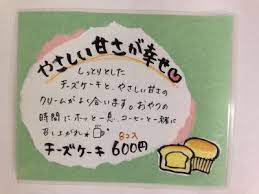 やさしい甘さが幸せ
しっとりとした
チーズケーキと、やさしい甘さの
クリームがよく合います。おやつの
時間にホッと一息、コーヒーと一緒に
お召し上がれ
8コ入
チーズケーキ 600円